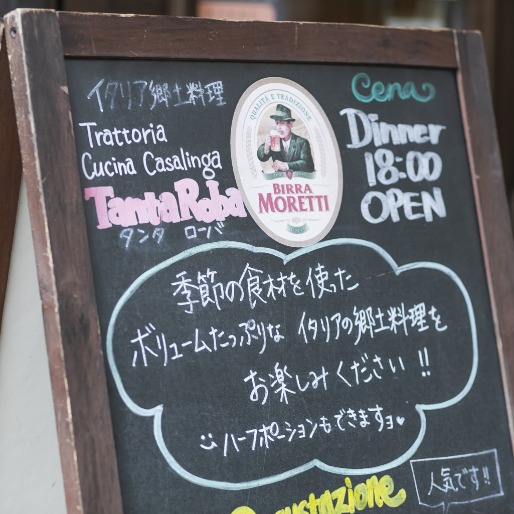 イタリア郷土料理
Trattoria
Cucina Casalinga
TantaRoba
タンタ ローバ
QUALITÀ E TRADIZIONE
BIRRA
MORETTI
Cena
Dinner
18:00
OPEN
季節の食材を使った
ボリュームたっぷりな イタリアの郷土料理を
お楽しみください!!
ハーフポーションもできますョ♥
人気です!!